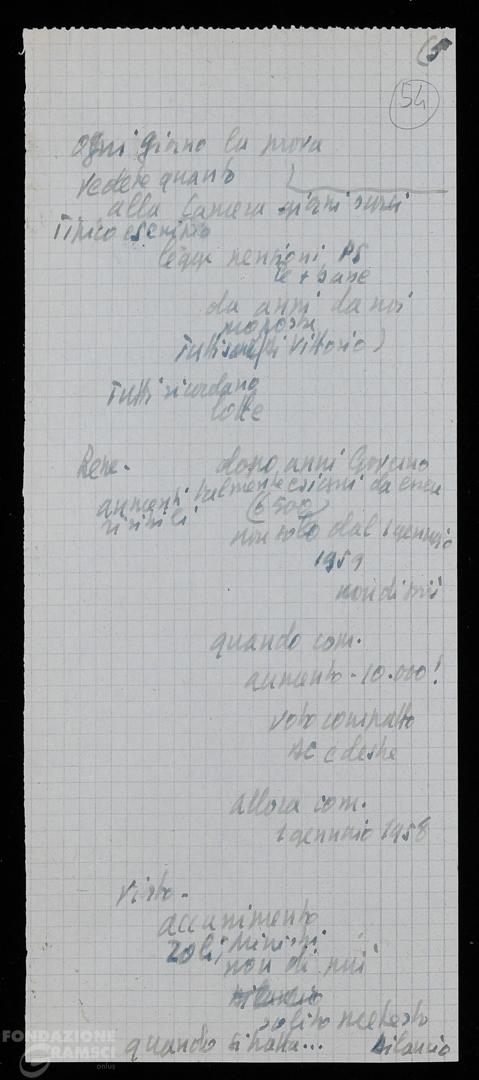 (5
54
ogni giorno la prova
vedere quanto
alla Camera giorni scorsi
Tipico esempio
legge pensioni PS
le + basse
da anni da noi
proposte
Tutti (Di Vittorio)
Tutti ricordano
lotte
Bene - dopo anni Governo
aumenti talmente esigui da essere
risibili (6500)
non solo dal 1 gennaio
1959
non di più
quando com.
aumento - 10.000!
voto compatto
DC e destre
allora com.
1 gennaio 1958
Visto -
accanimento
Zoli, Ministri
non di più
bilancio
solito pretesto
quando si tratta... bilancio
FONDAZIONE
GRAMSCI
onlus